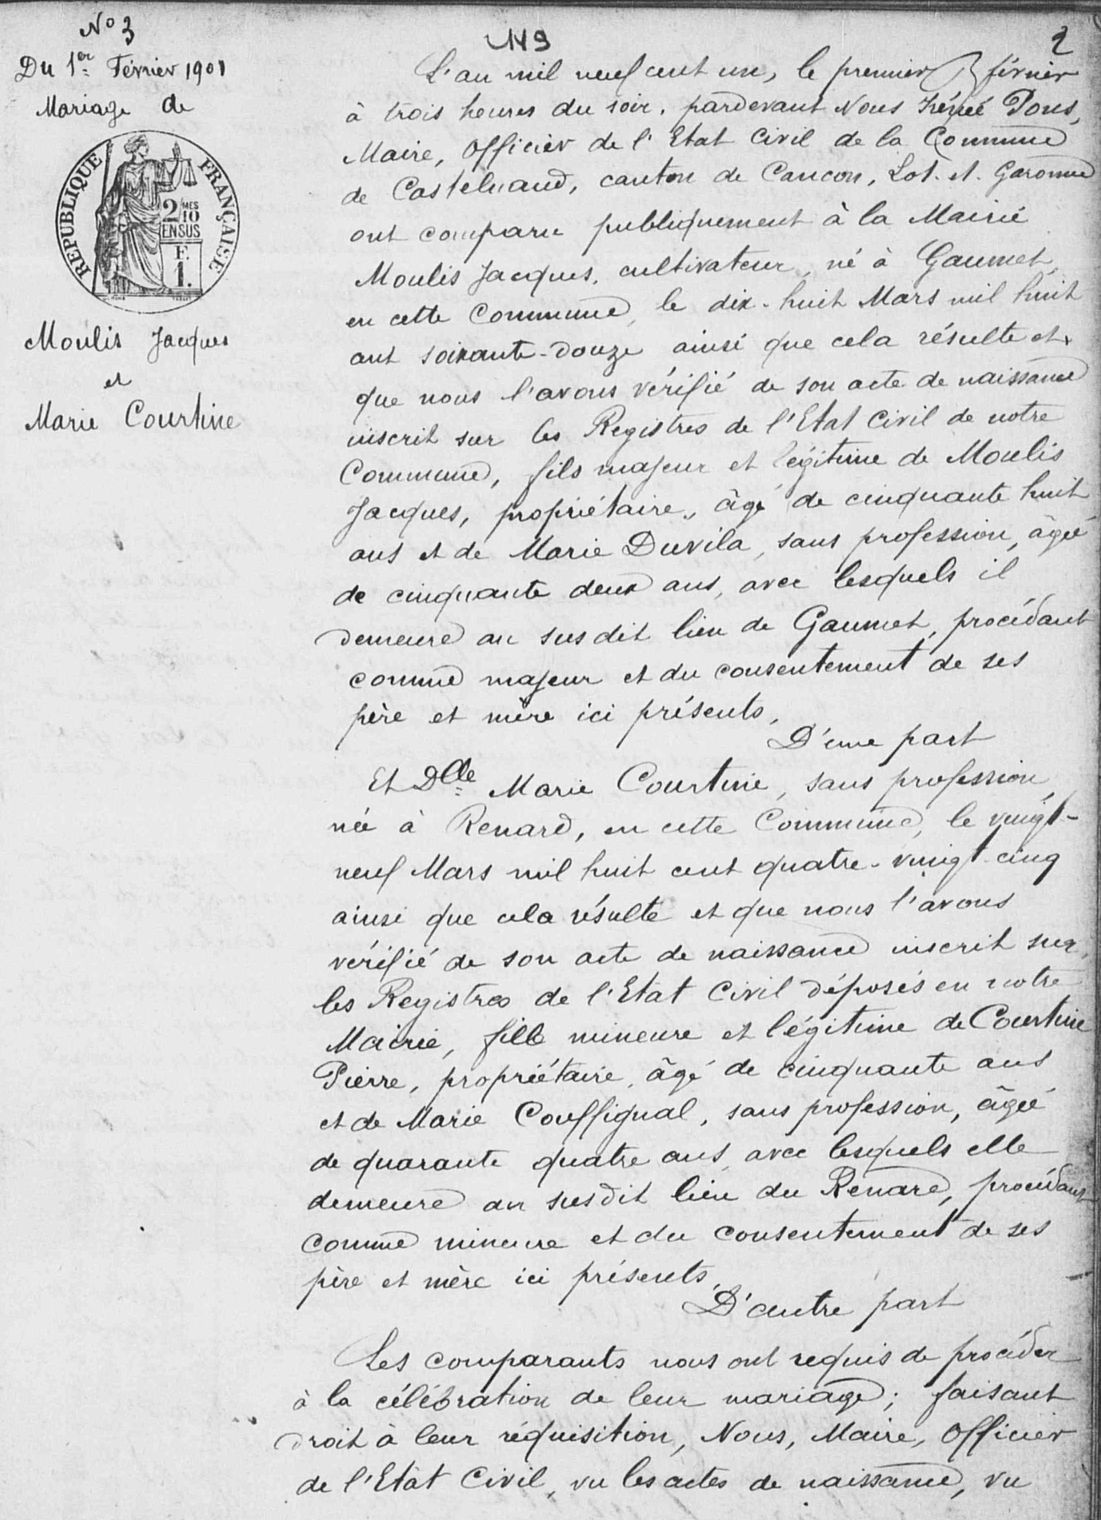 N° 3
Du 1er Février 1901
Mariage de
REPUBLIQUE FRANÇAISE
2 MES
10
EN SUS
F.
1.
Moulis Jacques
et
Marie Courtine
119
2
L'an mil neuf cent un, le premier février
à trois heures du soir, pardevant Nous Irénée Pons,
Maire, Officier de l'Etat Civil de la Commune
de Castelnaud, canton de Cancon, Lot-et-Garonne
ont comparu publiquement à la Mairie
Moulis Jacques, cultivateur, né à Gaumet,
en cette Commune, le dix-huit Mars mil huit
cent soixante-douze ainsi que cela résulte et
que nous l'avons vérifié de son acte de naissance
inscrit sur les Registres de l'Etat Civil de notre
Commune, fils majeur et légitime de Moulis
Jacques, propriétaire, âgé de cinquante huit
ans et de Marie Duvila, sans profession, âgée
de cinquante deux ans, avec lesquels il
demeure au susdit lieu de Gaumet, procédant
comme majeur et du consentement de ses
père et mère ici présents,
D'une part
Et Dlle Marie Courtine, sans profession,
née à Renard, en cette Commune, le vingt-
neuf Mars mil huit cent quatre-vingt-cinq
ainsi que cela résulte et que nous l'avons
vérifié de son acte de naissance inscrit sur
les Registres de l'Etat Civil déposés en notre
Mairie, fille mineure et légitime de Courtine
Pierre, propriétaire, âgé de cinquante ans
et de Marie Couffignal, sans profession, âgée
de quarante quatre ans, avec lesquels elle
demeure au susdit lieu du Renard, procédant
comme mineure et du consentement de ses
père et mère ici présents,
D'autre part
Les comparants nous ont requis de procéder
à la célébration de leur mariage; faisant
droit à leur réquisition, Nous, Maire, Officier
de l'Etat Civil, vu les actes de naissance, vu